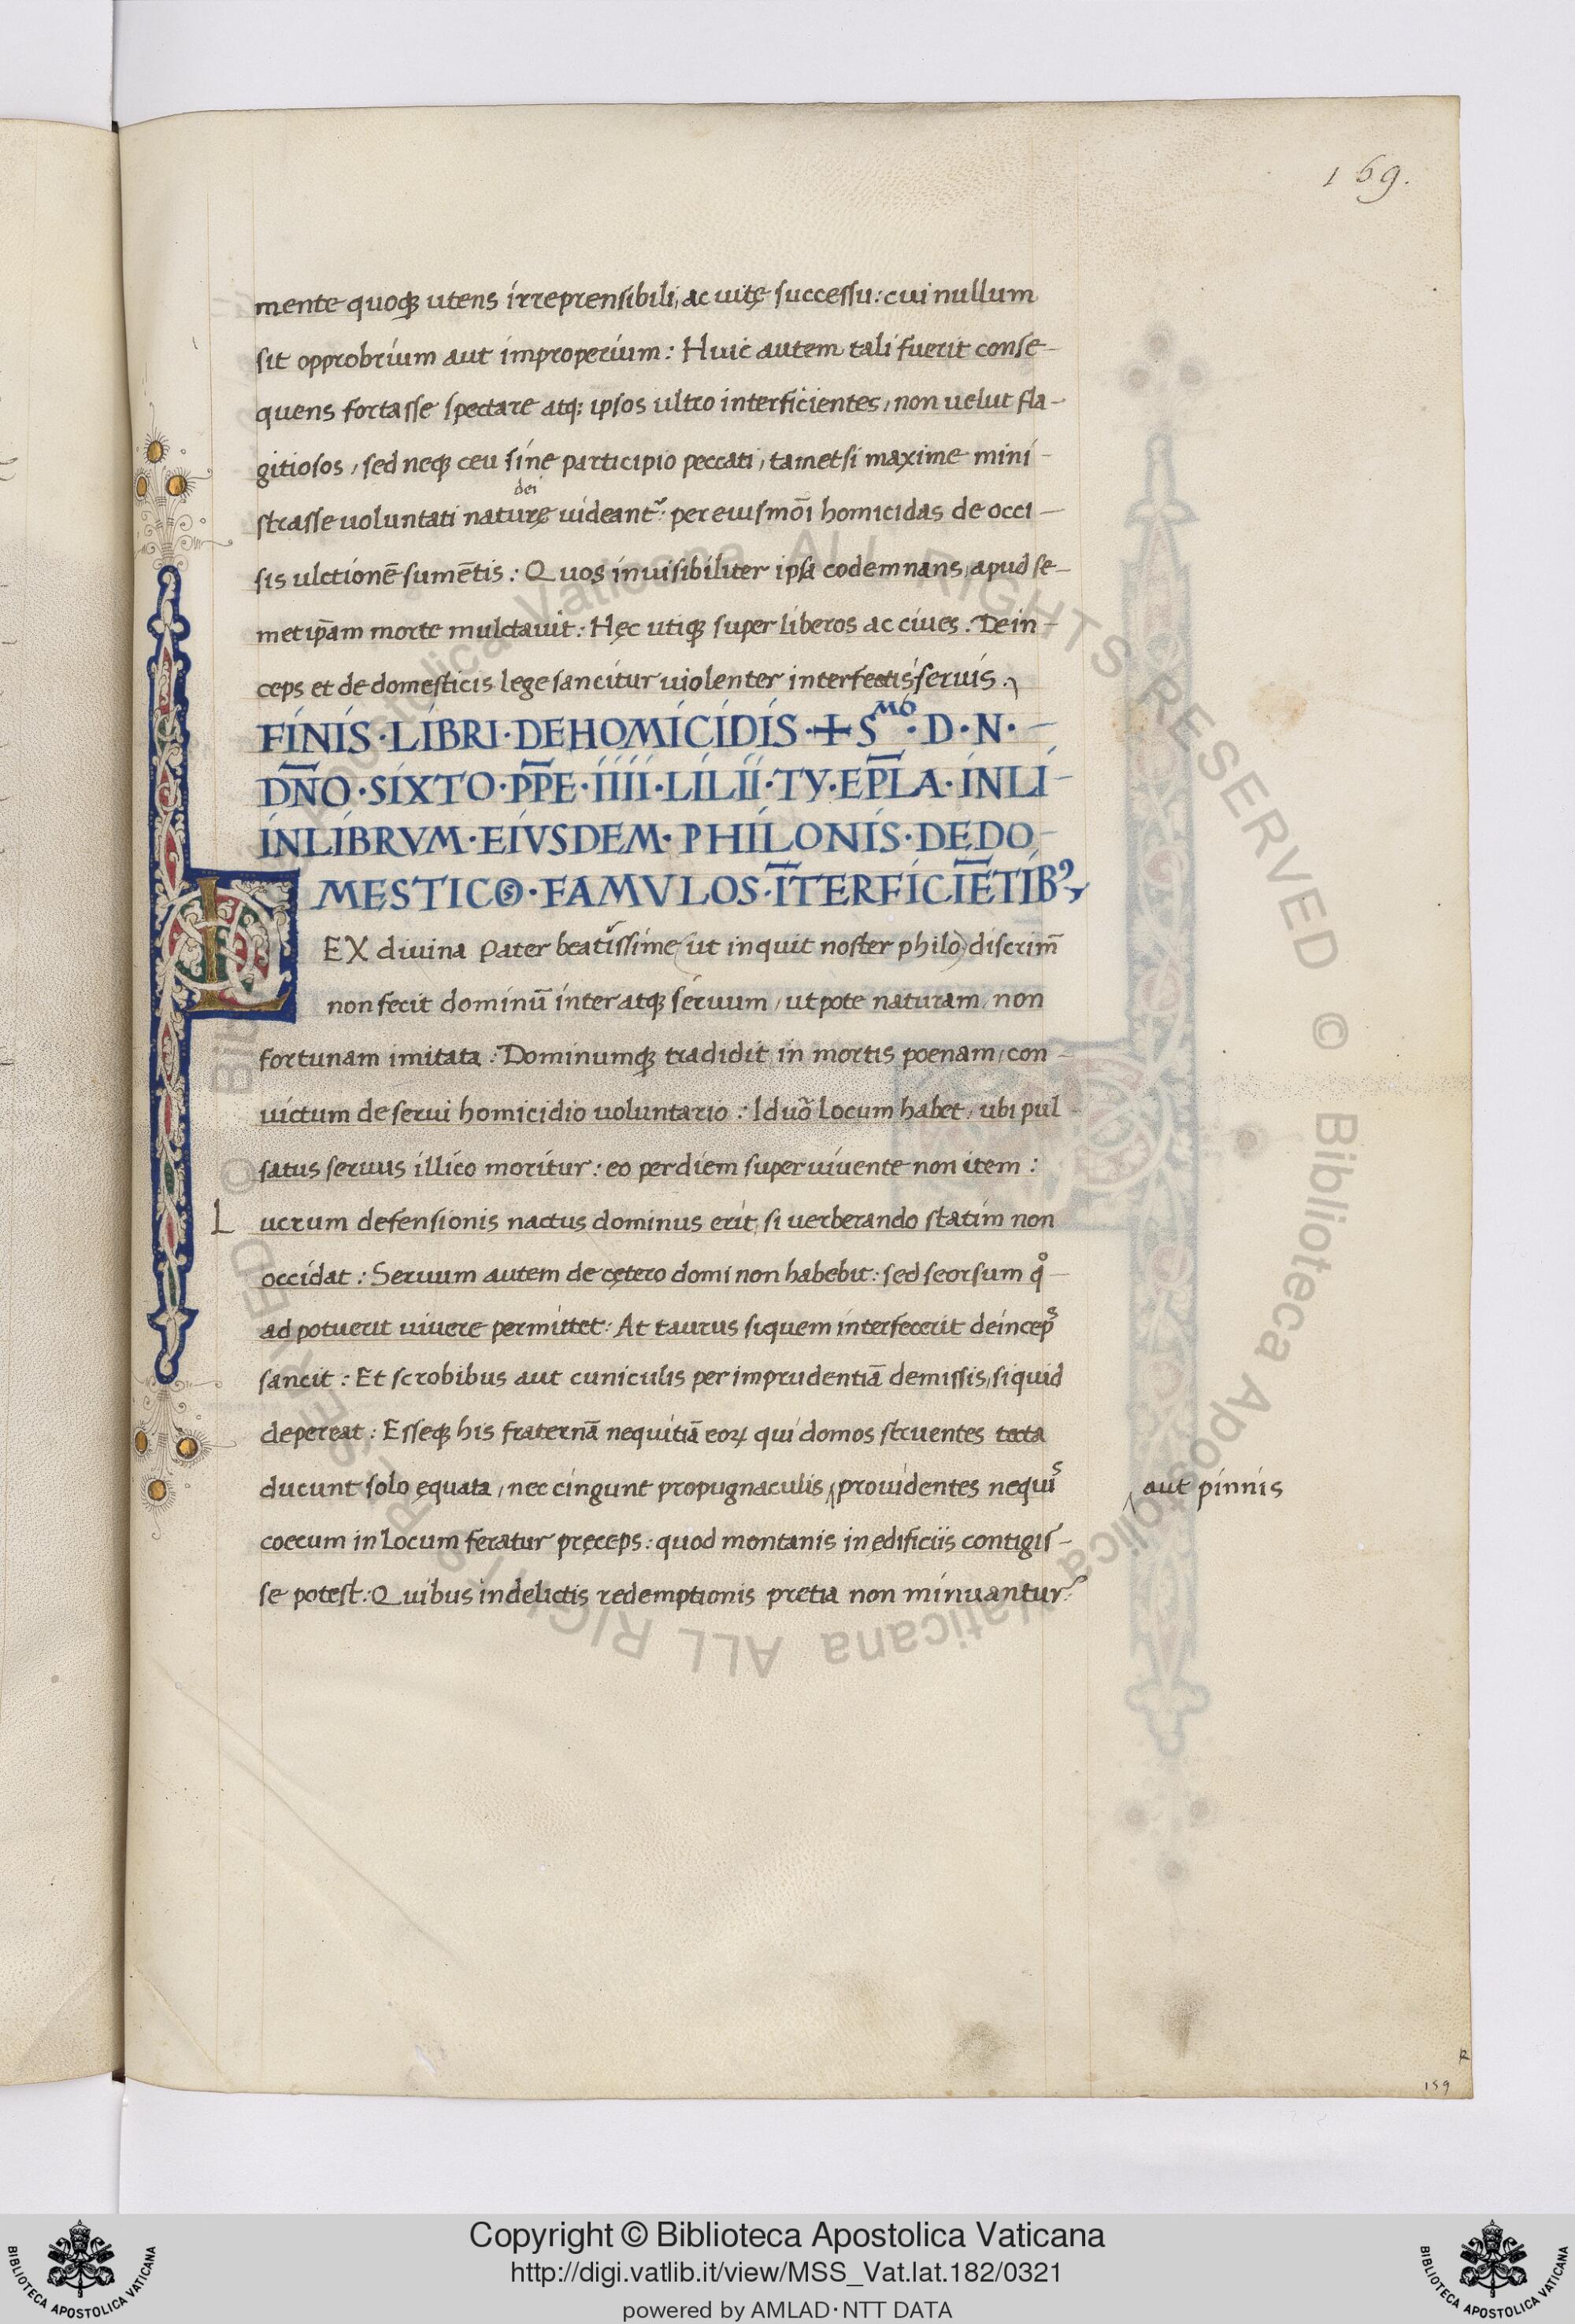 169.
mente quoqꝫ utens irreprensibili, ac uitę successu: cui nullum
sit opprobrium aut improperium: Huic autem tali fuerit conse-
quens fortasse spectare atq; ipsos ultro interficientes, non uelut fla-
gitiosos, sed neqꝫ ceu sine participio peccati, tametsi maxime mini-
dei
strasse uoluntati naturę uideant᷑: per eiusmōi homicidas de occi-
sis ulctionē sumētis: Quos inuisibiliter ipsa codemnans, apud se-
met ip̄am morte mulctauit: Hęc utiqꝫ super liberos ac ciues. Dein-
ceps et de domesticis lege sancitur uiolenter interfectis seruis.
FINIS·LIBRI·DE HOMICIDIS·+S^MO·D·N·-
DN̄O·SIXTO·PP̄E·IIII·LILII·TY·EP̄LA·INLI-
INLIBRVM·EIVSDEM·PHILONIS·DE DO-
MESTICOS·FAMVLOS·ĪTERFICIĒTIBꝰ
LEX diuina Pater beatissime (ut inquit noster philo) discrim̄
non fecit dominū inter atqꝫ seruum, ut pote naturam, non
fortunam imitata: Dominumqꝫ tradidit in mortis poenam, con-
uictum de serui homicidio uoluntario: Id uō Locum habet, ubi pul-
satus seruus illico moritur: eo per diem super uiuente non item:
Lucrum defensionis nactus dominus erit, si uerberando statim non
occidat: Seruum autem de cętero domi non habebit: sed seorsum qͦ-
ad potuerit uiuere permittet: At taurus siquem interfecerit deincepˢ
sancit: Et scrobibus aut cuniculis per imprudentiā demissis, siquid
depereat: Esseqꝫ his fraternā nequitiā eoꝝ qui domos struentes tecta
ducunt solo ęquata, nec cingunt propugnaculis, prouidentes nequiˢ
aut pinnis
coecum in Locum feratur pręceps: quod montanis in ędificiis contigis-
se potest: Quibus in delictis redemptionis pretia non minuantur:
R
159
Copyright © Biblioteca Apostolica Vaticana
http://digi.vatlib.it/view/MSS_Vat.lat.182/0321
powered by AMLAD·NTT DATA
BIBLIOTECA APOSTOLICA VATICANA
BIBLIOTECA APOSTOLICA VATICANA
© Biblioteca Apostolica Vaticana ALL RIGHTS RESERVED © Biblioteca Apostolica Vaticana ALL RIGHTS RESERVED